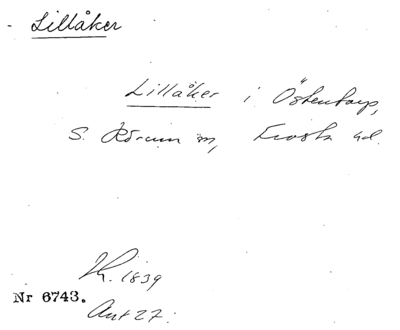 Lillåker
Lillåker i Östentorp,
S. Rörum sn, Frosta hd.
K. 1839
Nr 6743.
Akt 27.